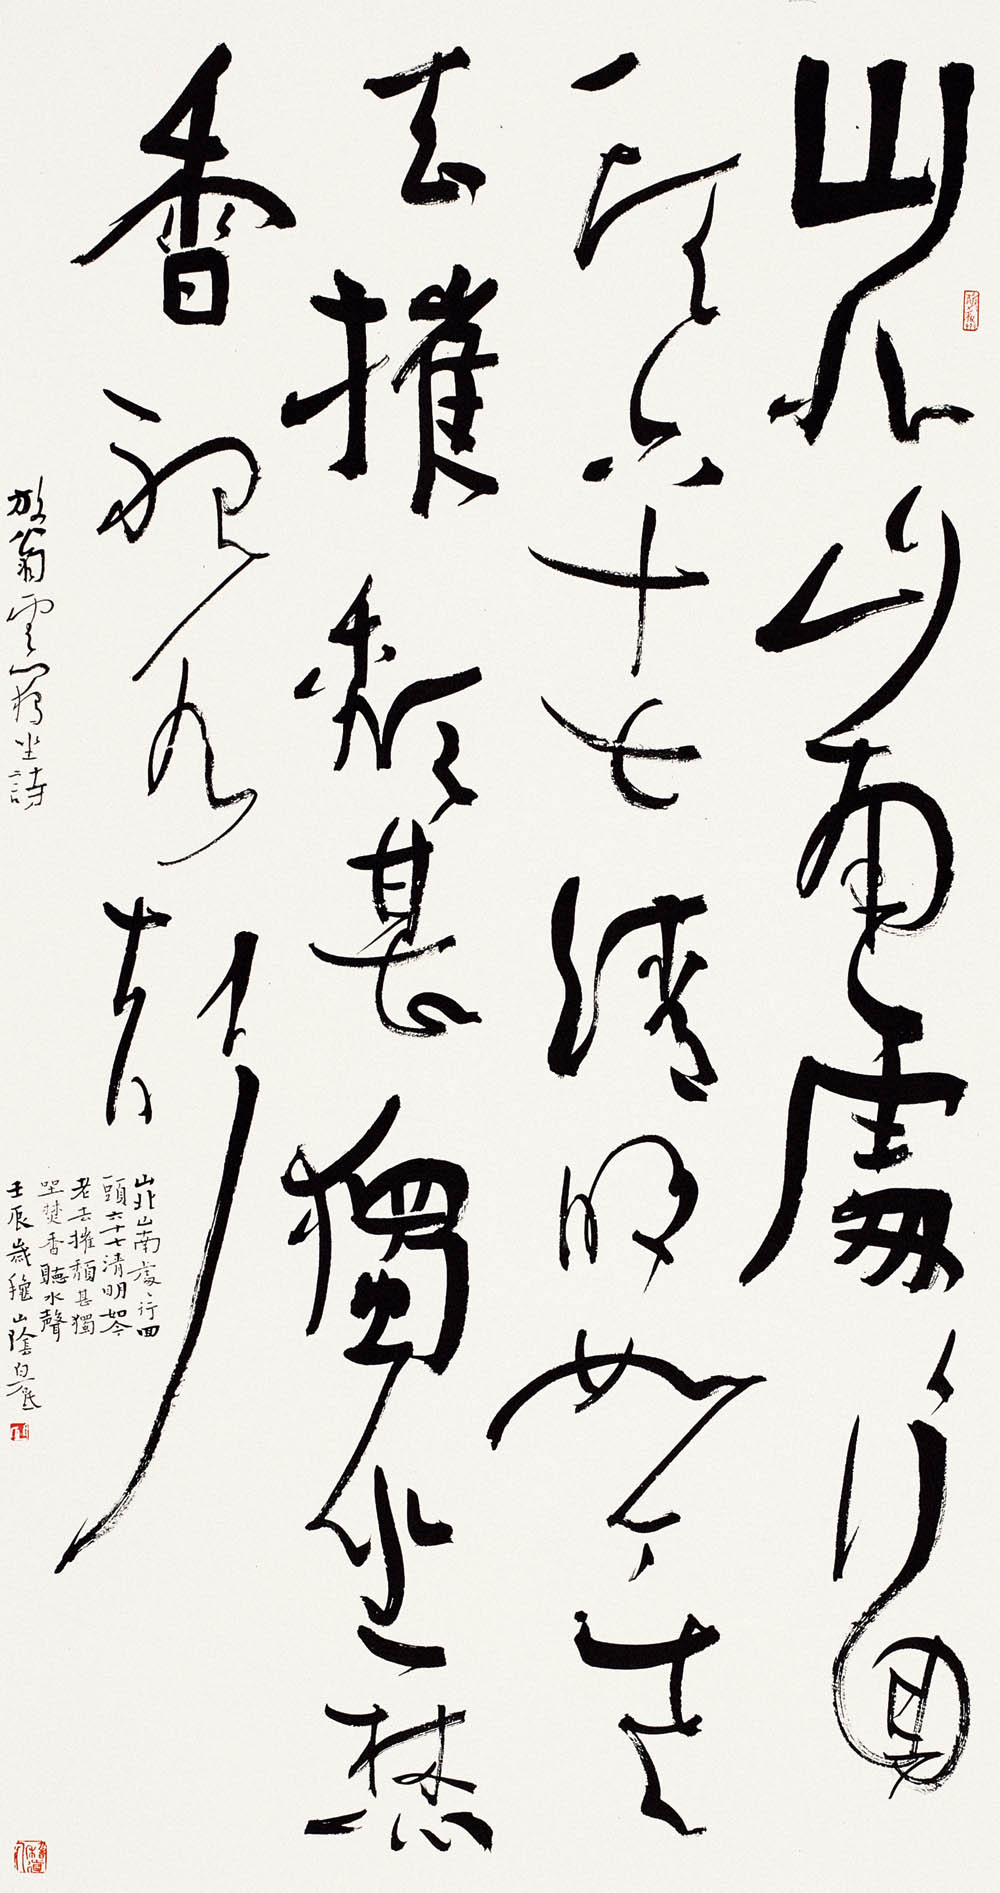 山北山南處〻行回
頭六十七清明如今老
去摧頹甚獨坐焚
香聽水聲
放翁雲門獨坐詩
山北山南處〻行回
頭六十七清明如今
老去摧頹甚獨
坐焚香聽水聲
壬辰歲穐山陰白砥